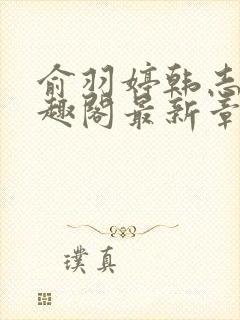 俞羽婷韩志
趣阁最新章
璞真